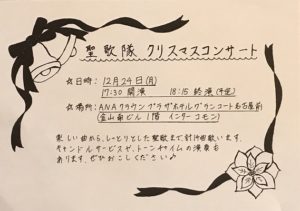 聖歌隊 クリスマスコンサート
☆日時：12月24日(月)
17:30 開演 18:15 終演(予定)
☆場所：ANAクラウンプラザホテルグランコート名古屋前
(金山南ビル1階 インターコモン)
楽しい曲から、しっとりとした聖歌まで計14曲歌います。
キャンドルサービスや、トーンチャイムの演奏も
あります。ぜひおこしください♪